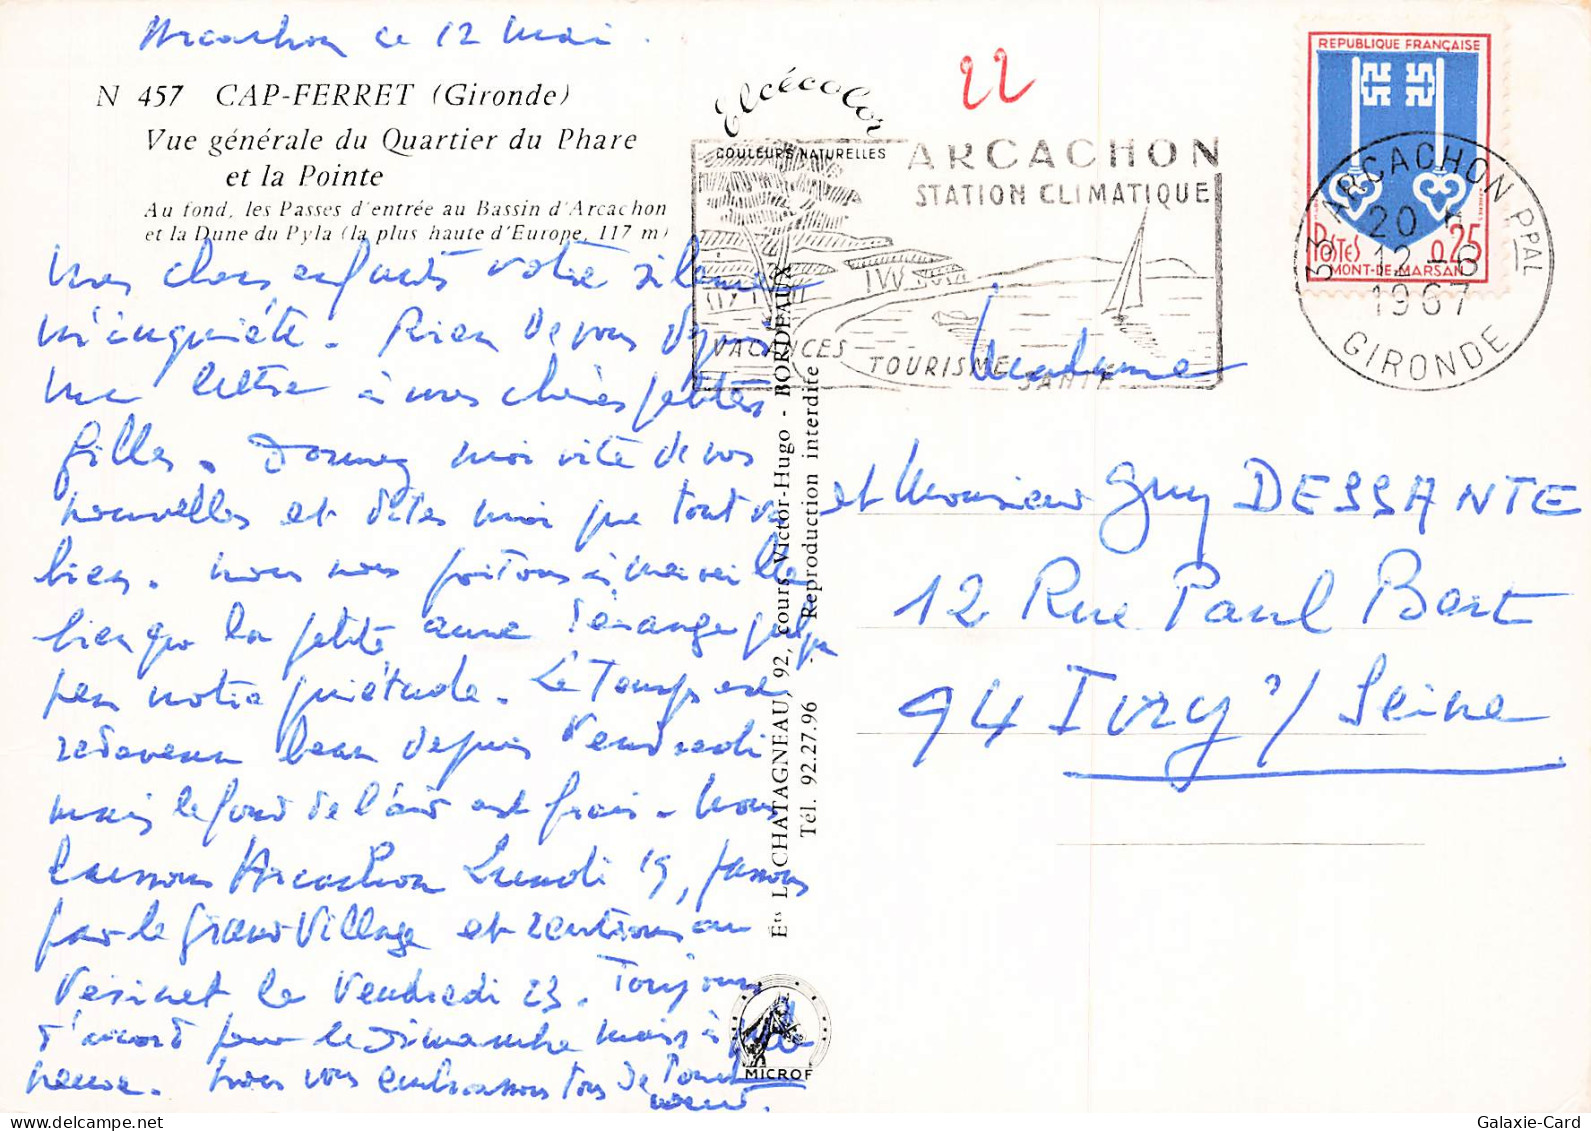 Arcachon ce 12 Mai.
N 457 CAP-FERRET (Gironde)
Vue générale du Quartier du Phare
et la Pointe
Au fond, les Passes d'entrée au Bassin d'Arcachon
et la Dune du Pyla (la plus haute d'Europe, 117 m)
Mes chers enfants votre silence
m'inquiète. Rien de vous depuis
ma lettre à mes chères petites
filles. Donnez moi vite de vos
nouvelles et dites moi que tout va
bien. Nous nous portons à merveille
bien que la petite anne dérange quelque
peu notre quiétude. Le Temps est
redevenu beau depuis Vendredi
mais le fond de l'air est frais. Nous
laissons Arcachon Lundi 19, passons
par le Grand Village et rentrons au
Vésinet le Vendredi 23. Toujours
d'accord pour le Dimanche mais à
heure. Nous vous embrassons tous de Tout
cœur.
Elcécolor
COULEURS NATURELLES
22
ARCACHON
STATION CLIMATIQUE
VACANCES
TOURISME
SANTÉ
REPUBLIQUE FRANÇAISE
POSTES 0,25
MONT-DE-MARSAN
33 ARCACHON PPAL
20 H
12-6
1967
GIRONDE
Ets L. CHATAGNEAU, 92, cours Victor-Hugo - BORDEAUX
Tél. 92.27.96 - Reproduction interdite
MICROF
Madame
et Monsieur Guy DESSANTE
12 Rue Paul Bert
94 Ivry s/ Seine
Galaxie-Card